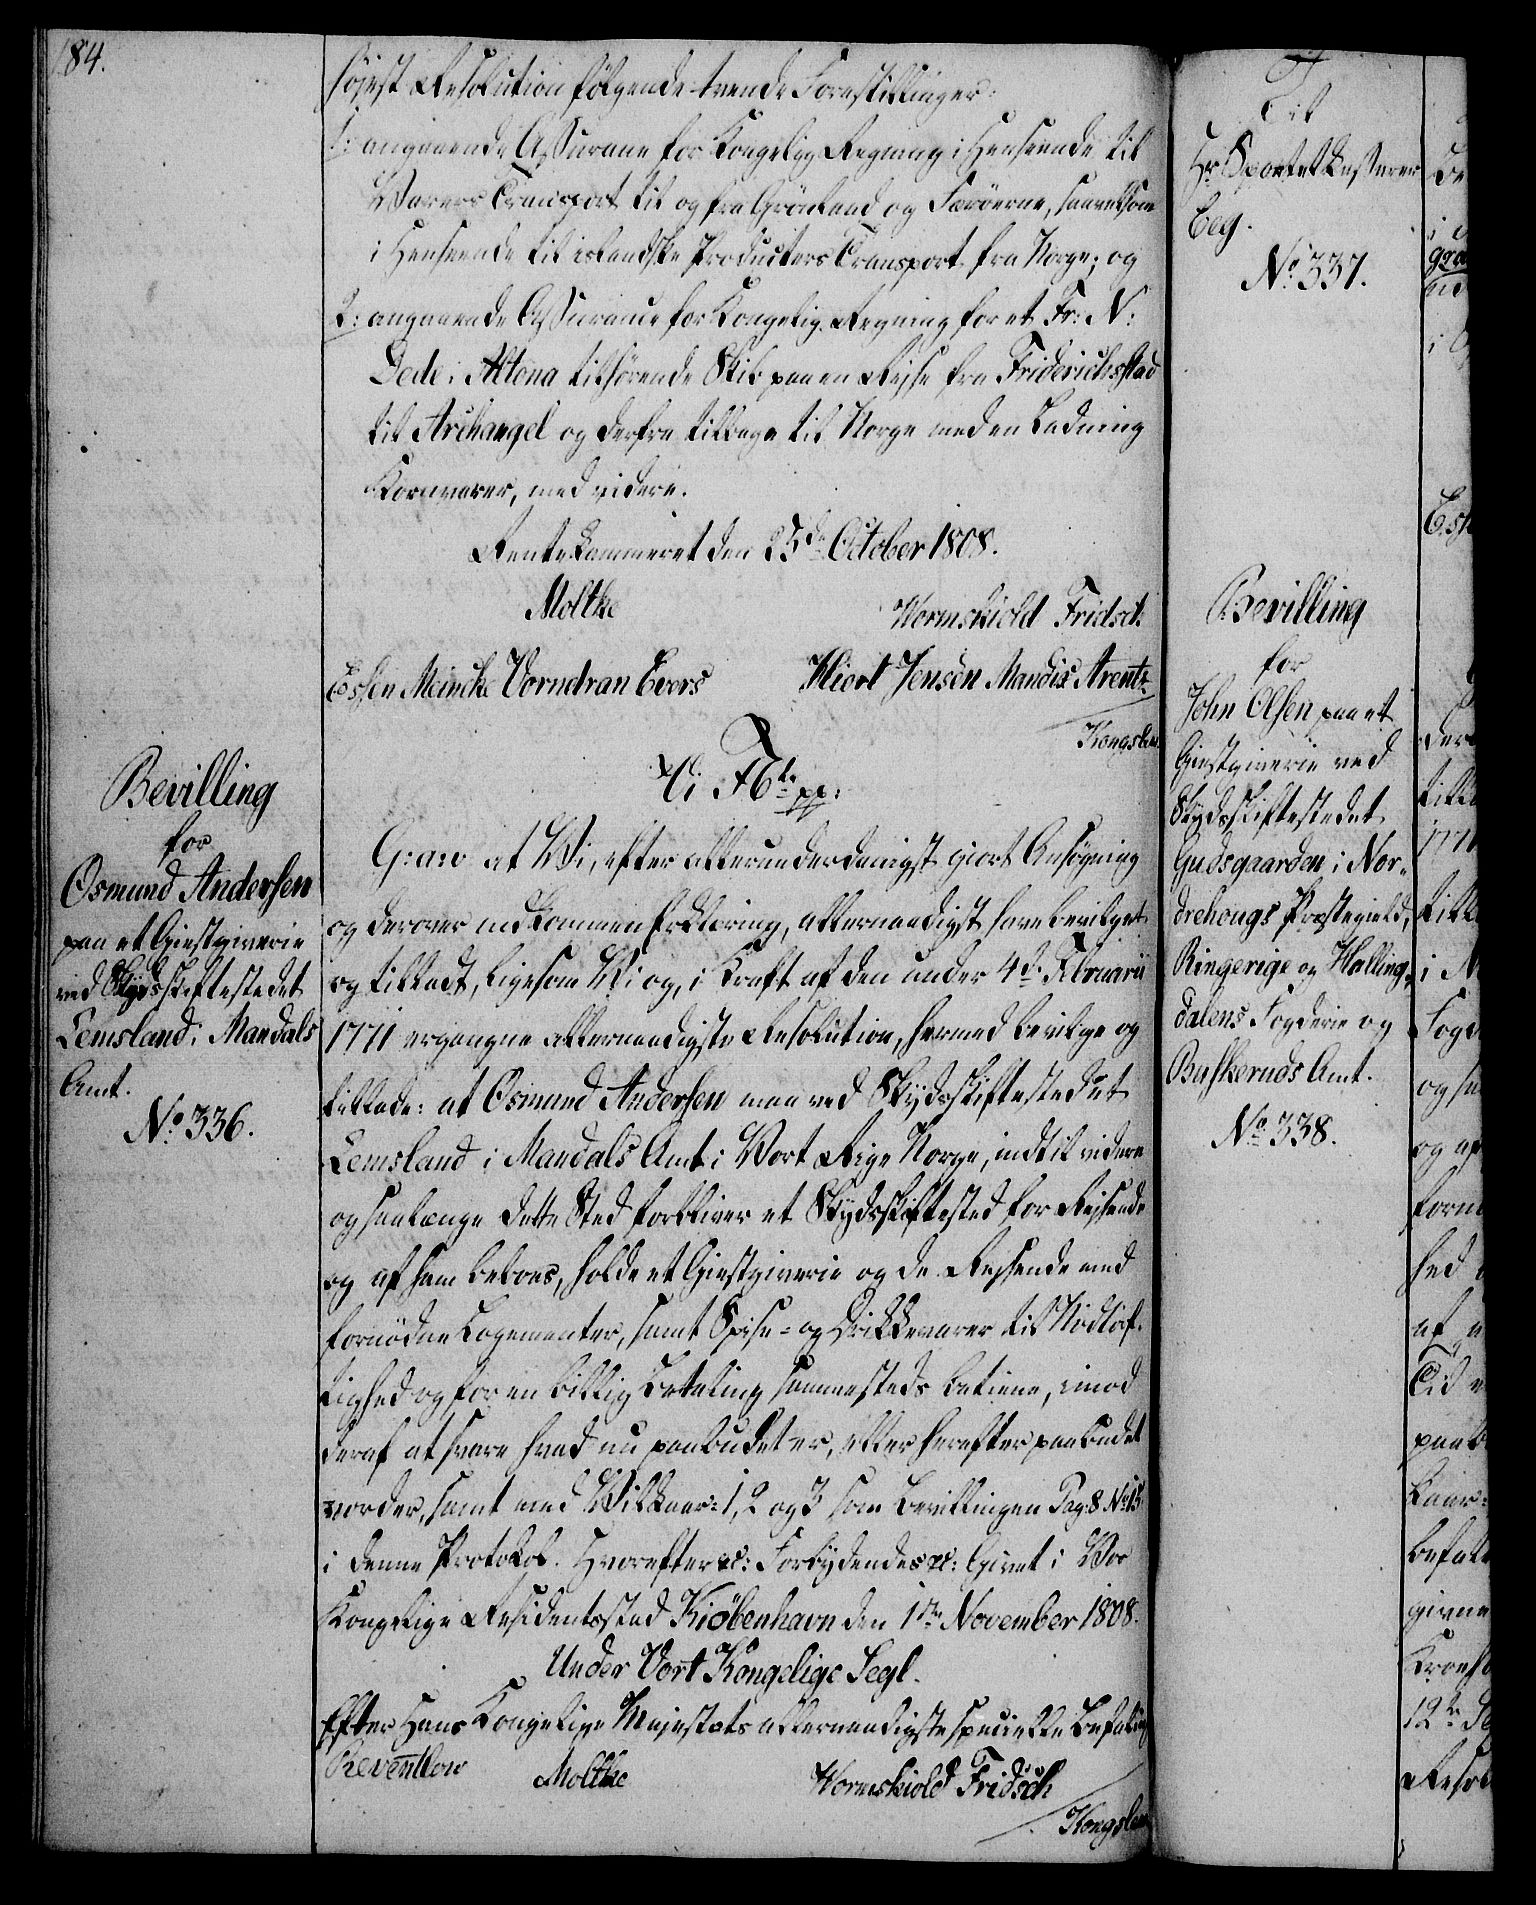 184.
højest Resolution følgende tvende Forestillinger:
1: angaaende Assurance for Kongelig Regning i Henseende til
Varers Transport til og fra Grönland og Færöerne, saavelsom
i Henseende til islandske Producters Transport fra Norge; og
2: angaaende Assurance for Kongelig Regning for et Fr: N:
Dede i Altona tilhörende Skib paa en Rejse fra Friderichsstad
til Archangel og derfra tilbage til Norge med en Ladning
Kornvarer, med videre.
Rentekammeret den 25de October 1808.
Moltke Wormskiold Fridsch
Essen Meincke Vorndran Evers Hiort Jensen Mandix Arentz
Kongslew
Bevilling
for
Osmund Andersen
paa et Giestgiverie
ved Skydsskiftestedet
Lemsland i Mandals
Amt.
No 336.
Vi Fr: 6te pp:
G: a: v: at Vi, efter allerunderdanigst giort Ansøgning
og derover indkommen Erklæring, allernaadigst have bevilget
og tilladt, ligesom Vi og, i Kraft af den under 4de Februarii
1771 ergangne allernaadigste Resolution, hermed bevilge og
tillade: at Osmund Andersen maa ved Skydsskiftestedet
Lemsland i Mandals Amt i Vort Rige Norge, indtil videre
og saalænge dette Sted forbliver et Skydsskiftested for Rejsende
og af ham beboes, holde et Giestgiverie og de Rejsende med
fornödne Logementer, samt Spise- og Drikkevarer til Nödtörf-
tighed og for en billig Betaling sammesteds betiene, imod
deraf at svare hvad nu paabudet er, eller herefter paabudet
vorder, samt med Vilkaar: 1, 2 og 3 som Bevillingen Pag: 8 No 15
i denne Protokol. Hvorefter &c: Forbydendes &c: Givet i Vor
Kongelige Residentsstad Kiöbenhavn den 1ste November 1808.
Under Vort Kongelige Segl.
Efter Hans Kongelige Majestæts allernaadigste specielle Befaling
Reventlow Moltke Wormskiold Fridsch
Kongslew
Til
Hr Sportelkasserer
Eeg.
No 337.
Bevilling
for
John Olsen paa et
Giestgiverie ved
Skydsskiftestedet
Gudsgaarden i Nor-
drehougs Præstegield,
Ringerige og Halling-
dalens Fogderie og
Buskeruds Amt.
No 338.